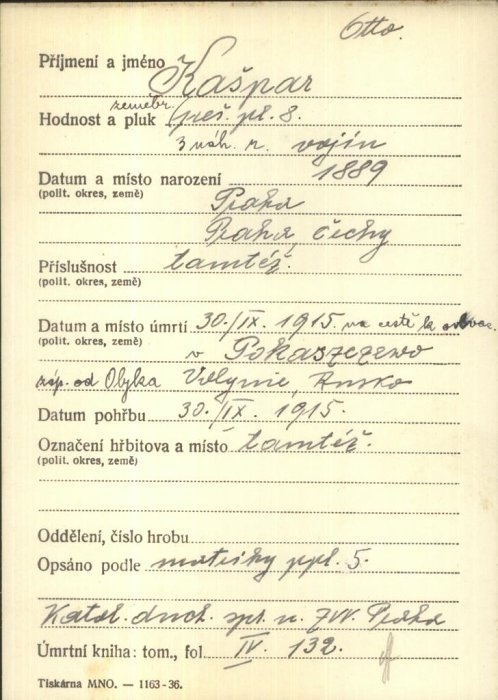 Otto.
Příjmení a jméno Kašpar
zeměbr.
Hodnost a pluk pěš. pl. 8.
3 náh. r. vojín
Datum a místo narození 1889
(polit. okres, země) Praha
Praha, Čechy
Příslušnost tamtéž.
(polit. okres, země)
Datum a místo úmrtí 30./IX. 1915. na cestě k obvaz.
(polit. okres, země) v Pokaszczewo
záp. od Olyka Volynie, Rusko
Datum pohřbu 30./IX. 1915.
Označení hřbitova a místo tamtéž.
(polit. okres, země)
Oddělení, číslo hrobu
Opsáno podle matriky ppl. 5.
Katol. duch. spr. n. ZVV. Praha
Úmrtní kniha: tom., fol. IV. 132.
Tiskárna MNO. — 1163-36.